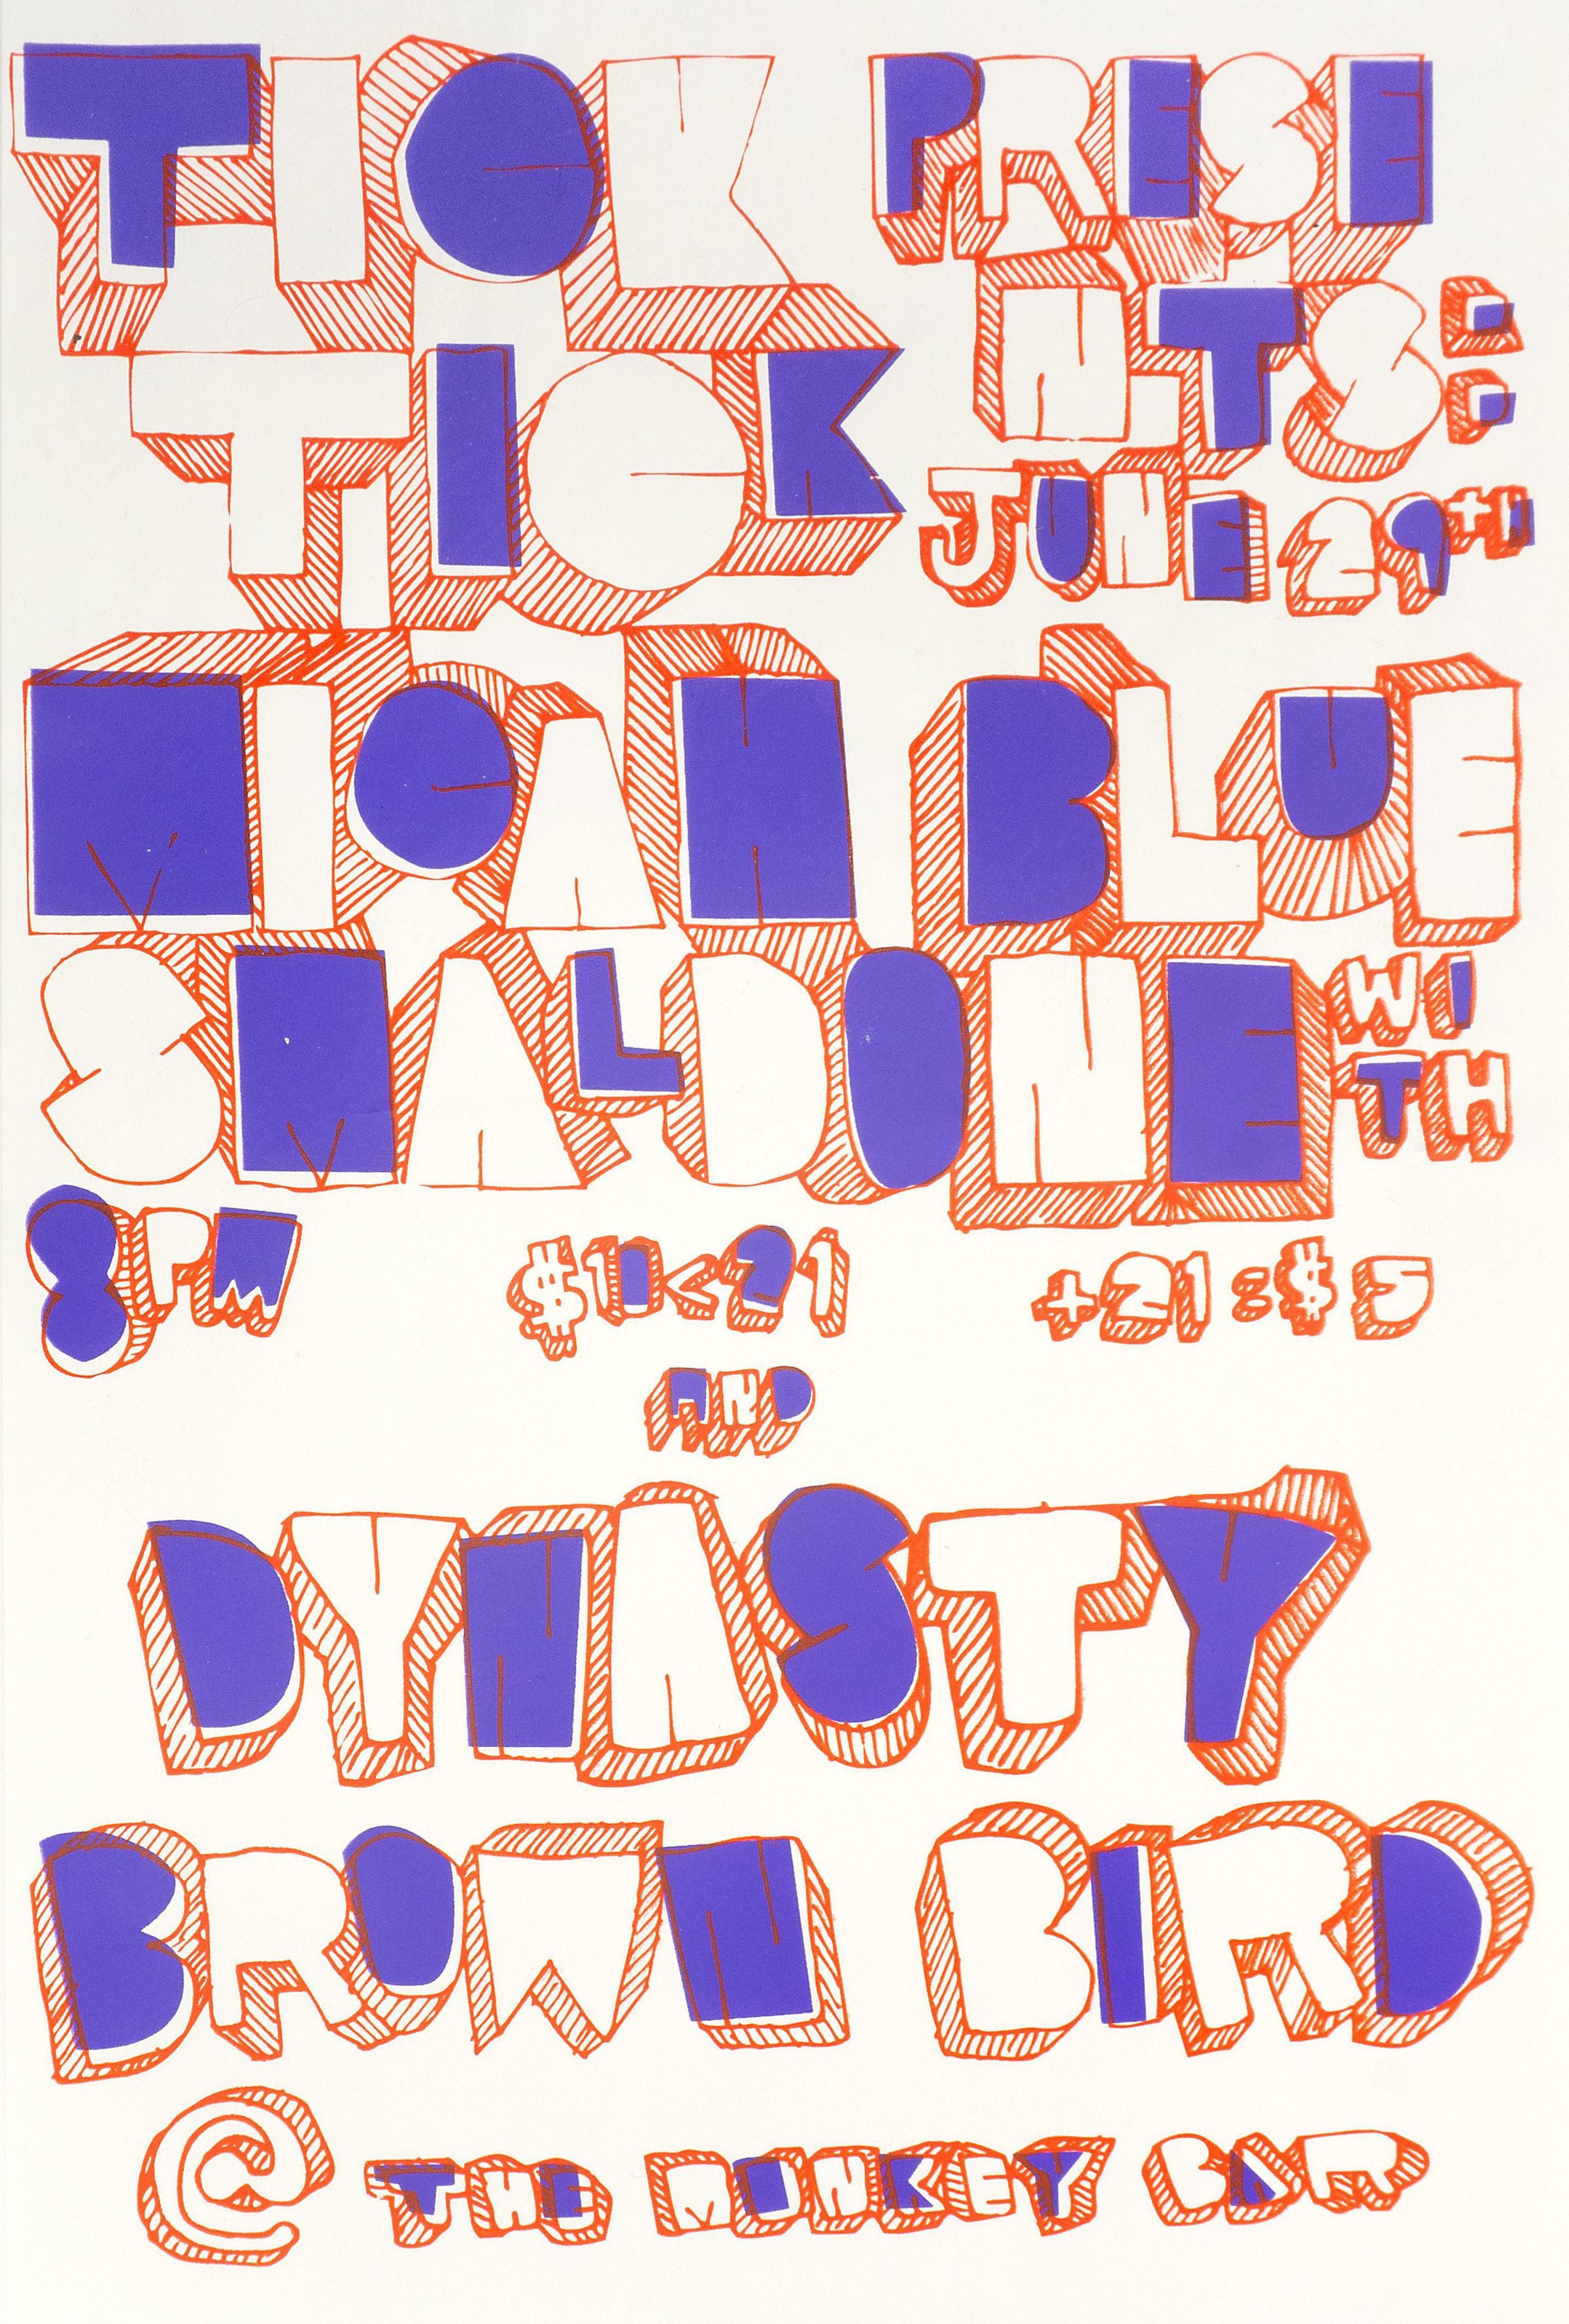 TICK PRESE
TICK NTS:
JUNE 29TH
MICAH BLUE
SMALDONE WI
TH
8PM $10<21 +21=$5
AND
DYNASTY
BROWN BIRD
@ THE MONKEY BAR